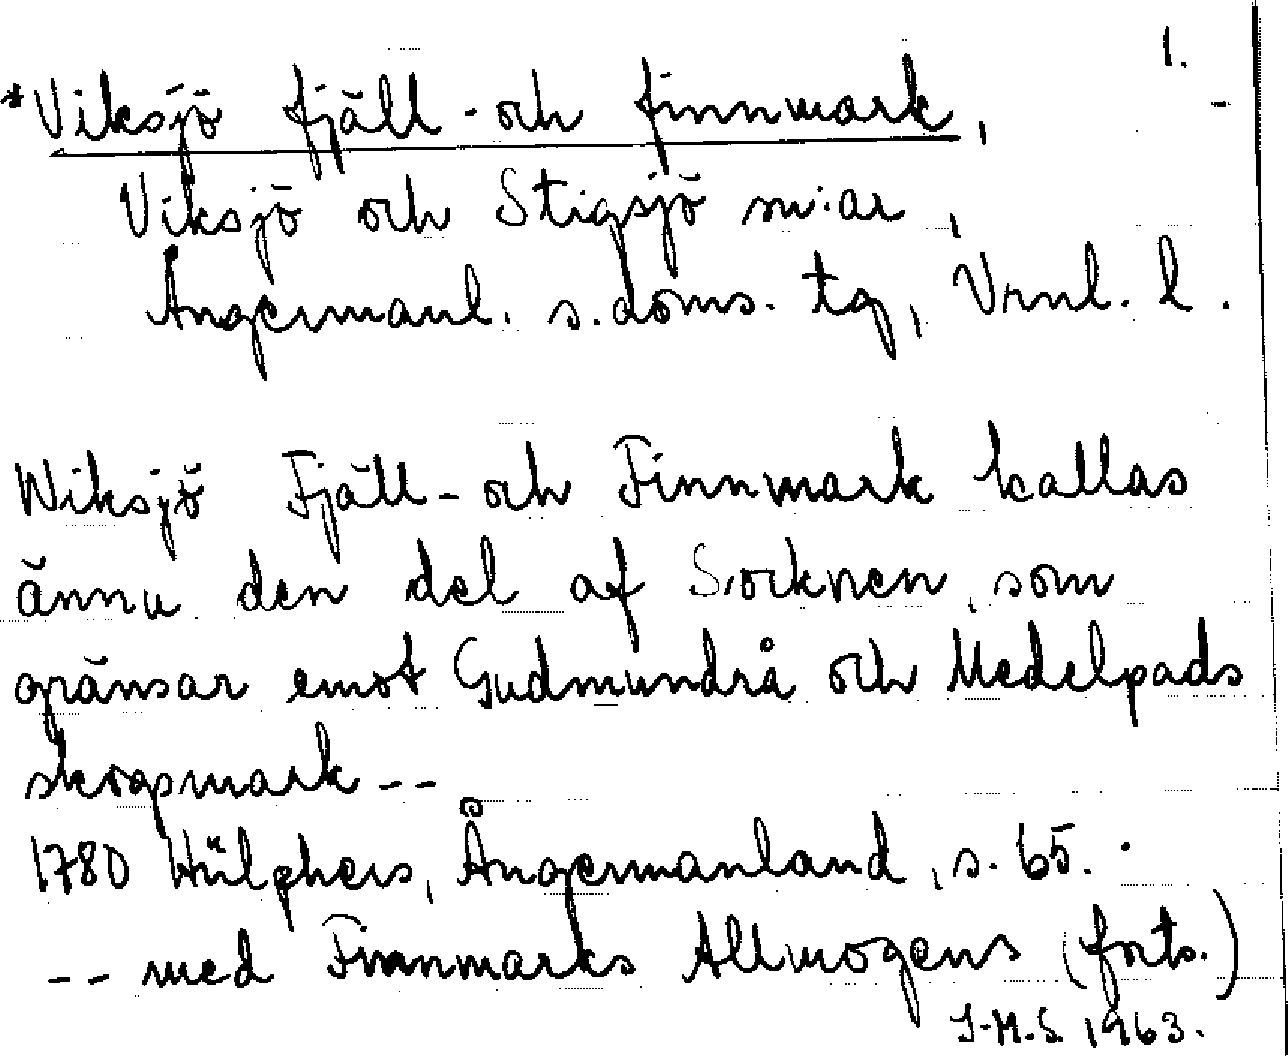 1.
*Viksjö fjäll- och finnmark,
Viksjö och Stigsjö sn:ar,
Ångermanl. s. doms. tg, Vrnl. l.
Wiksjö Fjäll- och Finnmark kallas
ännu den del af Socknen, som
gränsar emot Gudmundrå och Medelpads
skogsmark --
1780 Hülphers, Ångermanland, s. 65.
-- med Finnmarks Allmogens (forts.)
I-M.S. 1963.